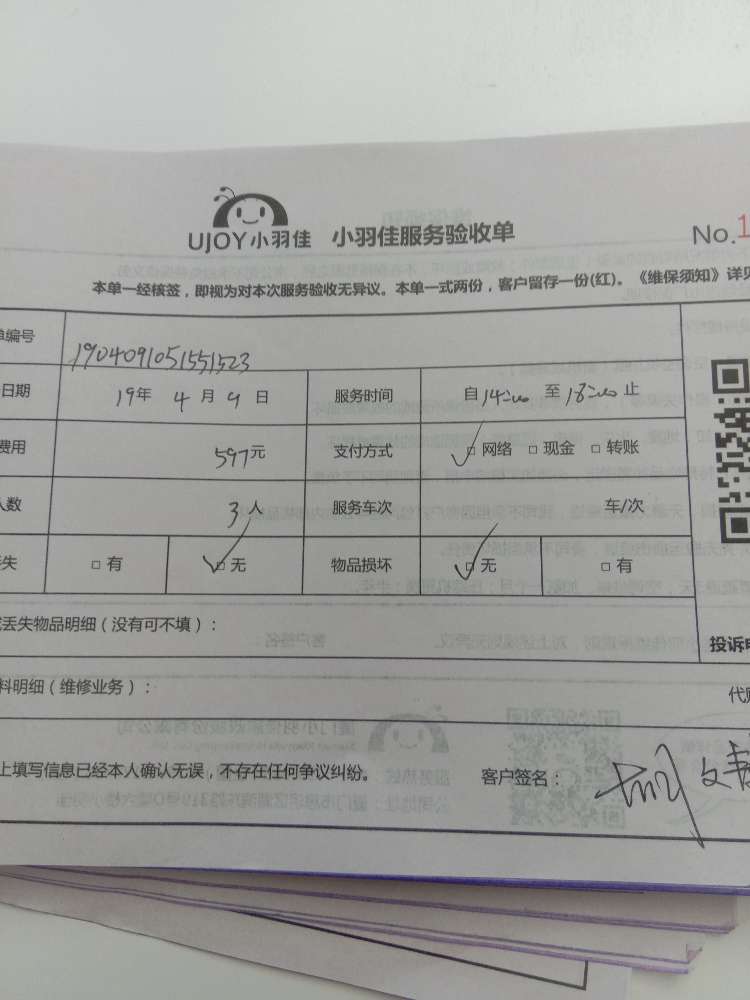 UJOY小羽佳 小羽佳服务验收单 No.1
本单一经核签，即视为对本次服务验收无异议。本单一式两份，客户留存一份(红)。《维保须知》详见
单编号 1904091051551523
日期 19年 4月9日 服务时间 自14:00至18:00止
费用 597元 支付方式 □网络 □现金 □转账
人数 3人 服务车次 车/次
失 □有 □无 物品损坏 □无 □有
丢失物品明细（没有可不填）：
投诉电
料明细（维修业务）：
代购
上填写信息已经本人确认无误，不存在任何争议纠纷。 客户签名：